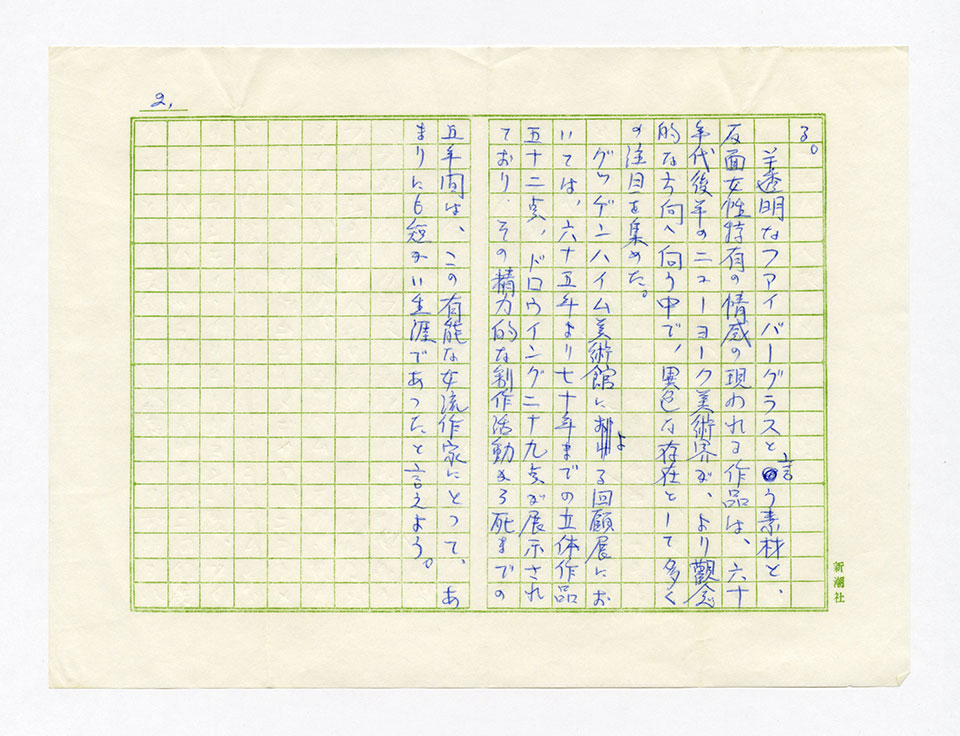 2,
る。
半透明なファイバーグラスと言う素材と、
反面女性特有の情感の現われる作品は、六十
年代後半のニューヨーク美術界が、より觀念
的な方向へ向う中で、異色な存在として多く
の注目を集めた。
グッゲンハイム美術館による回顧展にお
いては、六十五年より七十年までの立体作品
五十二点、ドロウイング二十九点が展示され
ており、その精力的な制作活動から死までの
五年間は、この有能な女流作家にとって、あ
まりにも短かい生涯であったと言えよう。
新潮社